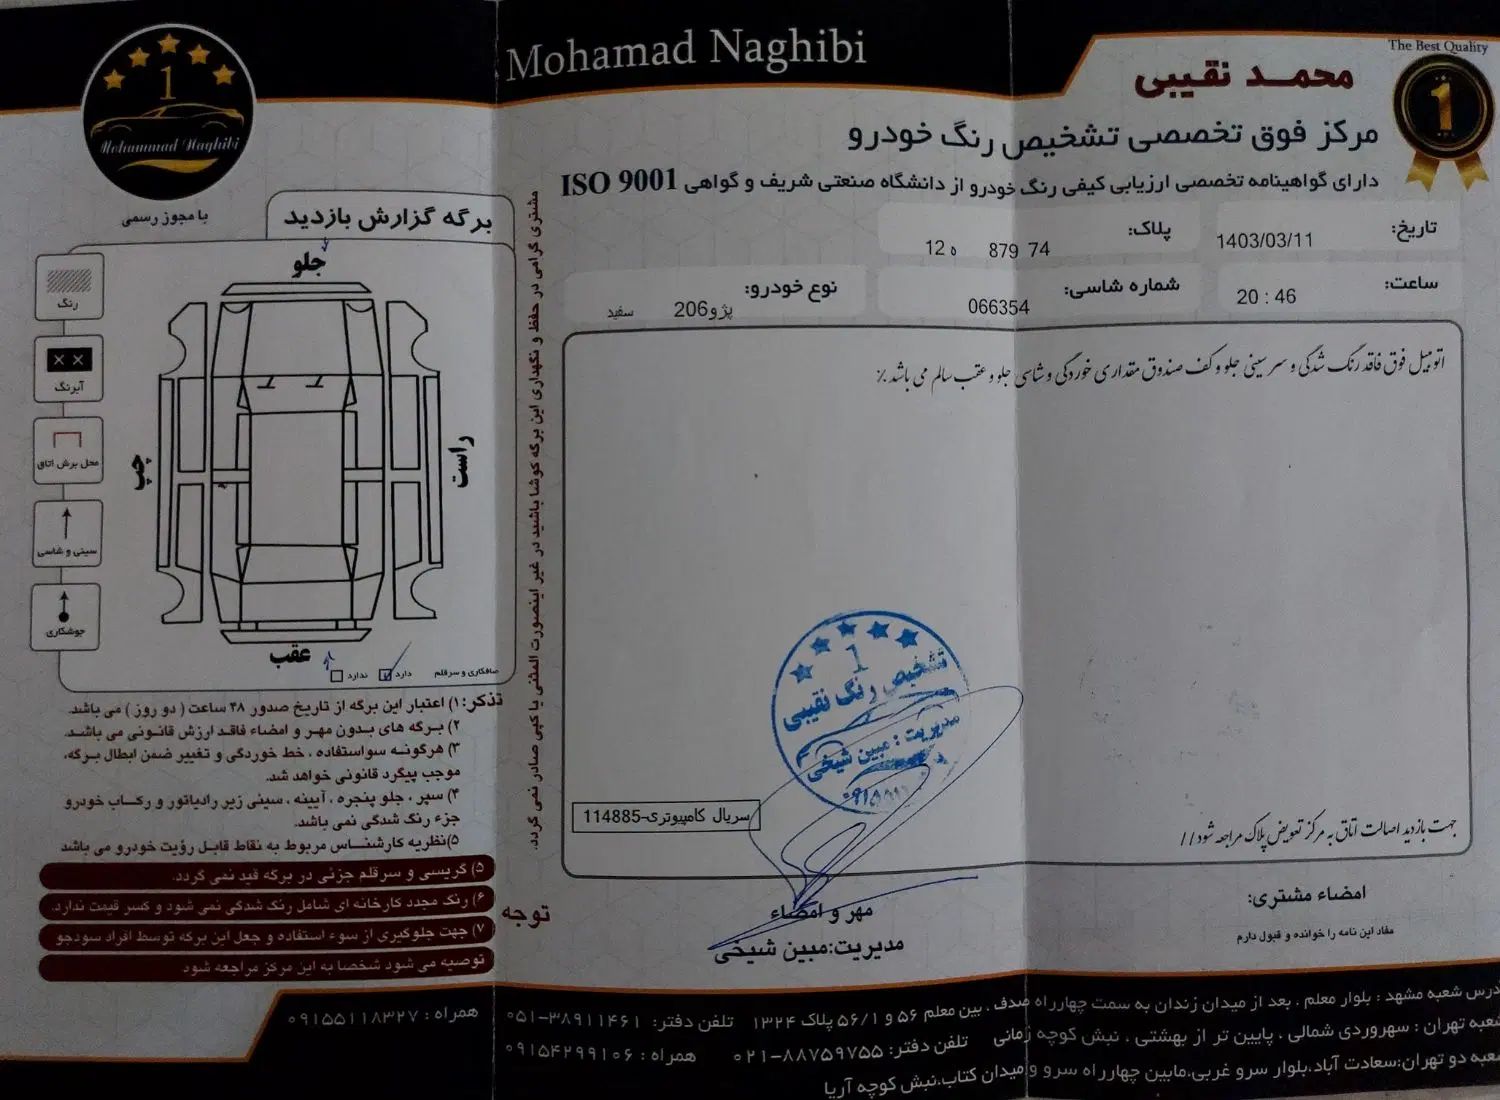 Mohamad Naghibi
The Best Quality
محمـد نقیبی
1
مرکز فوق تخصصی تشخیص رنگ خودرو
دارای گواهینامه تخصصی ارزیابی کیفی رنگ خودرو از دانشگاه صنعتی شریف و گواهی ISO 9001
تاریخ: 1403/03/11
پلاک: 74 879 ه 12
ساعت: 20 : 46
شماره شاسی: 066354
نوع خودرو: پژو206 سفید
اتومبیل فوق فاقد رنگ شدگی و سر سینی جلو و کف صندوق مقداری خوردگی و شاسی جلو و عقب سالم می باشد.٪
تشخیص رنگ نقیبی
1
مدیریت : مبین شیخی
سریال کامپیوتری-114885
جهت بازدید اصالت اتاق به مرکز تعویض پلاک مراجعه شود//
امضاء مشتری:
مفاد این نامه را خوانده و قبول دارم
مهر و امضاء
مدیریت:مبین شیخی
1
Mohammad Naghibi
با مجوز رسمی
برگه گزارش بازدید
جلو
رنگ
آبرنگ
محل برش اتاق
سینی و شاسی
جوشکاری
چپ
راست
عقب
صافکاری و سرقلم دارد ندارد
مشتری گرامی در حفظ و نگهداری این برگه کوشا باشید در غیر اینصورت المثنی یا کپی صادر نمی گردد.
تذکر:۱) اعتبار این برگه از تاریخ صدور ۴۸ ساعت ( دو روز ) می باشد.
۲) برگه های بدون مهـر و امضاء فاقـد ارزش قانـونی می باشـد.
۳) هرگونه سواستفاده ، خط خوردگی و تغییر ضمن ابطال برگه،
موجب پیگرد قانونی خواهد شد.
۴) سپر ، جلو پنجره ، آیینه ، سینی زیر رادیاتور و رکـاب خودرو
جزء رنگ شدگی نمی باشد.
۵)نظریه کارشنـاس مربوط به نقاط قابل رؤیت خودرو می باشد
۵) گریسی و سرقلم جزئی در برگه قید نمی گردد.
۶) رنگ مجدد کارخانه ای شامل رنگ شدگی نمی شود و کسر قیمت ندارد.
۷) جهت جلوگیری از سوء استفاده و جعل این برگه توسط افراد سودجو
توصیه می شود شخصا به این مرکز مراجعه شود
توجه
درس شعبه مشهد : بلوار معلم ، بعد از میدان زندان به سمت چهارراه صدف ، بین معلم ۵۶ و ۵۶/۱ پلاک ۱۳۲۴ تلفن دفتر: ۰۵۱-۳۸۹۱۱۴۶۱ همراه : ۰۹۱۵۵۱۱۸۳۲۷
شعبه تهران : سهروردی شمالی ، پایین تر از بهشتی ، نبش کوچه زمانی تلفن دفتر: ۰۲۱-۸۸۷۵۹۷۵۵ همراه : ۰۹۱۵۴۲۹۹۱۰۶
عبه دو تهران:سعادت آباد،بلوار سرو غربی،مابین چهارراه سرو و میدان کتاب،نبش کوچه آریا